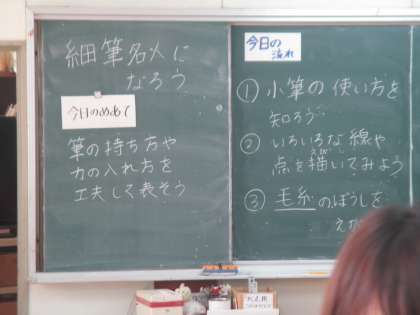 細筆名人に
なろう
今日のめあて
筆の持ち方や
力の入れ方を
工夫して表そう
今日の
流れ
① 小筆の使い方を
知ろう
② いろいろな線や
えが
点を描いてみよう
③ 毛糸のぼうしを